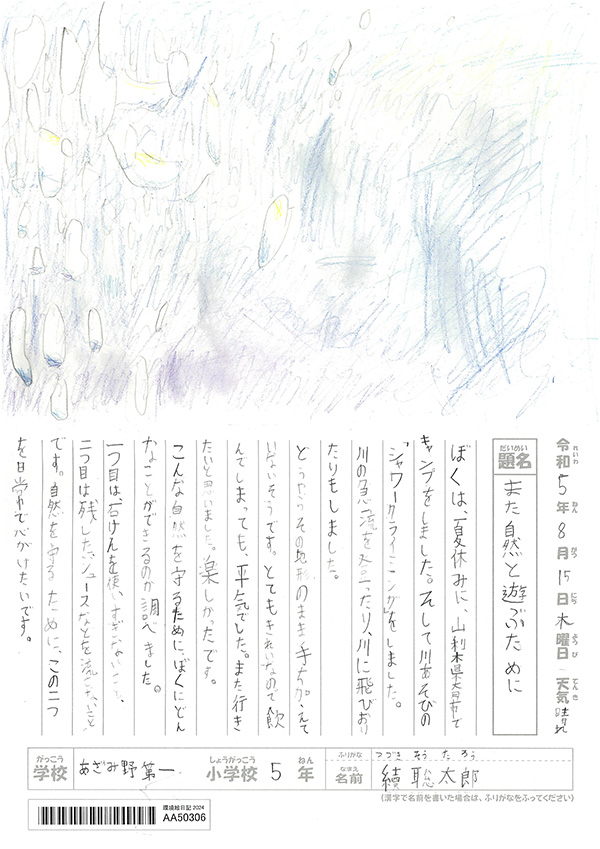 令和5年8月15日木曜日 天気晴れ
題名 また自然と遊ぶために
ぼくは、夏休みに、山梨県大月市で
キャンプをしました。そして川あそびの
「シャワークライミング」をしました。
川の急流を登ったり、川に飛びおり
たりもしました。
どうやらその地形のまま手を加えて
いないそうです。とてもきれいなので飲
んでしまっても、平気でした。また行き
たいと思いました。楽しかったです。
こんな自然を守るために、ぼくにどん
なことができるのか調べました。
一つ目は、石けんを使いすぎないこと、
二つ目は残したジュースなどを流さないこと
です。自然を守るために、この二つ
を日常で心がけたいです。
学校 あざみ野第一 小学校 5年
ふりがな つづき そうたろう
名前 續 聡太郎
(漢字で名前を書いた場合は、ふりがなをふってください)
環境絵日記 2024
AA50306